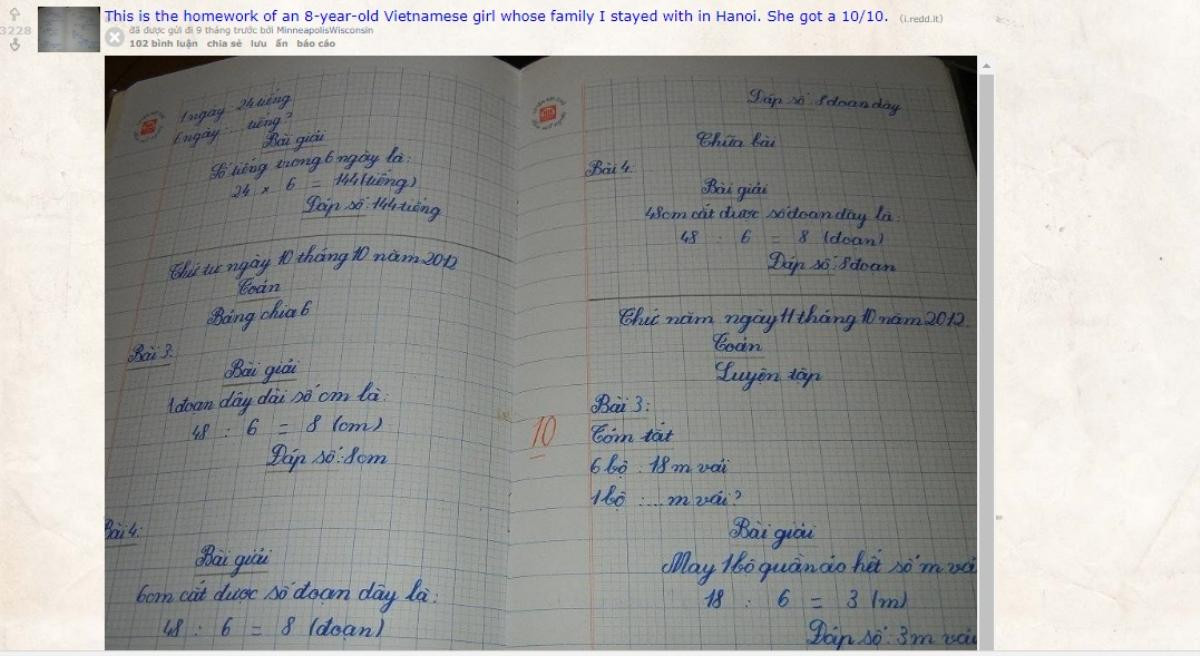 This is the homework of an 8-year-old Vietnamese girl whose family I stayed with in Hanoi. She got a 10/10. (i.redd.it)
3228
đã được gửi đi 9 tháng trước bởi MinneapolisWisconsin
102 bình luận chia sẻ lưu ẩn báo cáo
1 ngày: 24 tiếng
6 ngày: ... tiếng?
Bài giải
Số tiếng trong 6 ngày là:
24 × 6 = 144 (tiếng)
Đáp số: 144 tiếng
Thứ tư ngày 10 tháng 10 năm 2012
Toán
Bảng chia 6
Bài 3:
Bài giải
1 đoạn dây dài số cm là:
48 : 6 = 8 (cm)
Đáp số: 8cm
Bài 4:
Bài giải
6cm cắt được số đoạn dây là:
48 : 6 = 8 (đoạn)
Đáp số: 8 đoạn dây
Chữa bài
Bài 4:
Bài giải
48cm cắt được số đoạn dây là:
48 : 6 = 8 (đoạn)
Đáp số: 8 đoạn
Thứ năm ngày 11 tháng 10 năm 2012.
Toán
Luyện tập
10
Bài 3:
Tóm tắt
6 bộ : 18 m vải
1 bộ : ... m vải?
Bài giải
May 1 bộ quần áo hết số m vả
18 : 6 = 3 (m)
Đáp số: 3 m vải